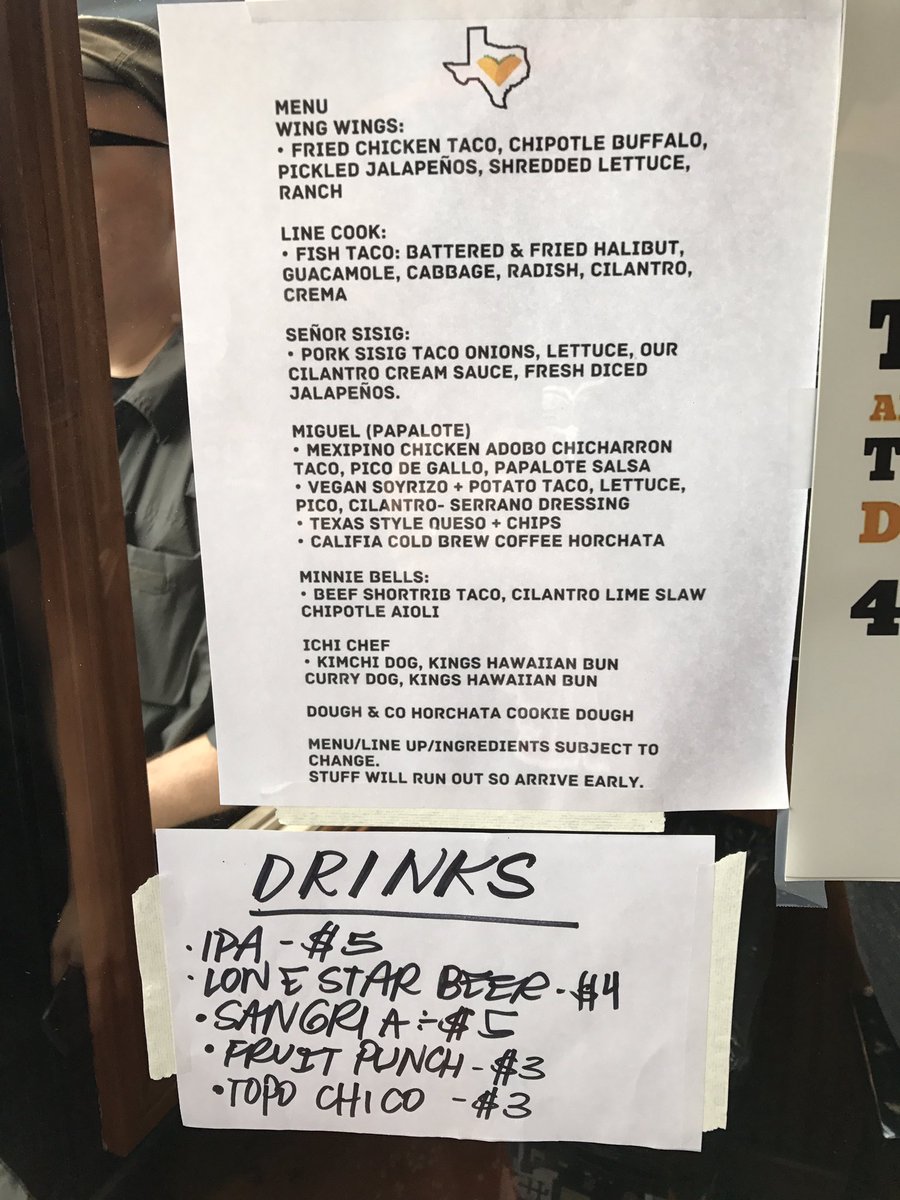 MENU
WING WINGS:
• FRIED CHICKEN TACO, CHIPOTLE BUFFALO,
PICKLED JALAPEÑOS, SHREDDED LETTUCE,
RANCH
LINE COOK:
• FISH TACO: BATTERED & FRIED HALIBUT,
GUACAMOLE, CABBAGE, RADISH, CILANTRO,
CREMA
SEÑOR SISIG:
• PORK SISIG TACO ONIONS, LETTUCE, OUR
CILANTRO CREAM SAUCE, FRESH DICED
JALAPEÑOS.
MIGUEL (PAPALOTE)
• MEXIPINO CHICKEN ADOBO CHICHARRON
TACO, PICO DE GALLO, PAPALOTE SALSA
• VEGAN SOYRIZO + POTATO TACO, LETTUCE,
PICO, CILANTRO- SERRANO DRESSING
• TEXAS STYLE QUESO + CHIPS
• CALIFIA COLD BREW COFFEE HORCHATA
MINNIE BELLS:
• BEEF SHORTRIB TACO, CILANTRO LIME SLAW
CHIPOTLE AIOLI
ICHI CHEF
• KIMCHI DOG, KINGS HAWAIIAN BUN
CURRY DOG, KINGS HAWAIIAN BUN
DOUGH & CO HORCHATA COOKIE DOUGH
MENU/LINE UP/INGREDIENTS SUBJECT TO
CHANGE.
STUFF WILL RUN OUT SO ARRIVE EARLY.
DRINKS
• IPA - $5
• LONE STAR BEER - $4
• SANGRIA - $5
• FRUIT PUNCH - $3
• TOPO CHICO - $3